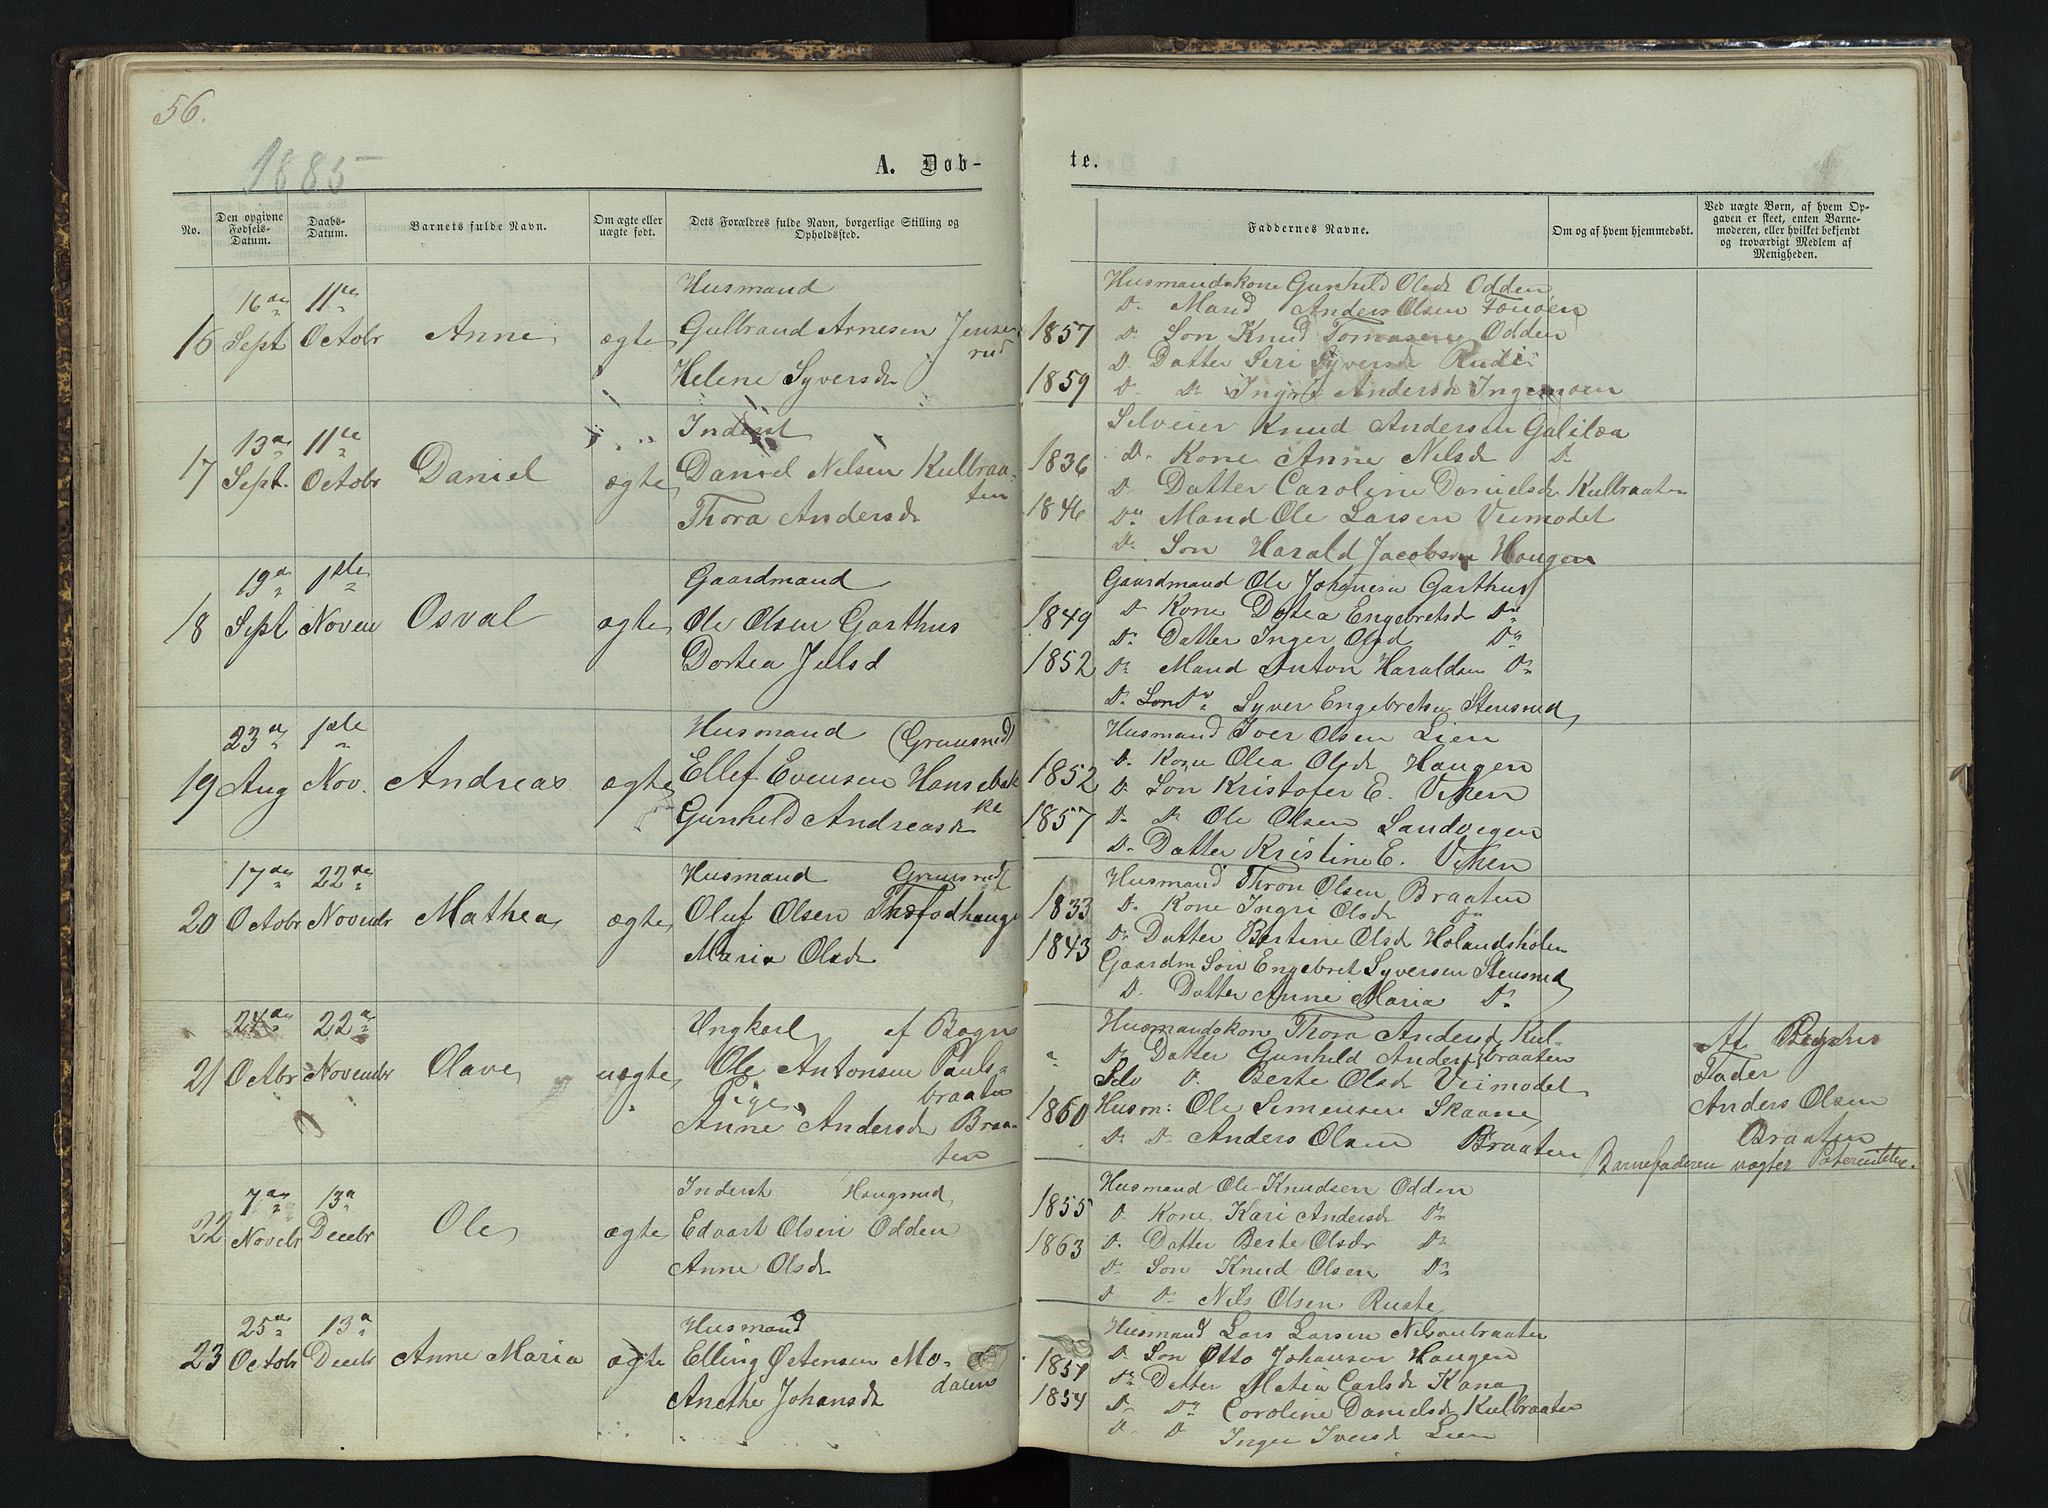 56.
1885
A. Døb-
te.
No.
Den opgivne Fødsels-Datum.
Daabs-Datum.
Barnets fulde Navn.
Om ægte eller uægte født.
Dets Forældres fulde Navn, borgerlige Stilling og Opholdssted.
Faddernes Navne.
Om og af hvem hjemmedøbt.
Ved uægte Børn, af hvem Opgaven er skeet, enten Barnemoderen, eller hvilket bekjendt og troværdigt Medlem af Menigheden.
16 16de Sept 11te Octobr Anne ægte
Husmand
Gulbrand Arnesen Jensrud
Helene Syversdr
1857
1859
Husmandskone Gunhild Olsdr Odden
Do Mand Anders Olsen
Do Søn Knud Tomasen Odden
Do Datter Siri Syversdr Rudi
Do Do Ingri Andersdr Ingemoen
17 13de Sept. 11te Octobr Daniel ægte
Inderst
Daniel Nilsen Kulbraaten
Thora Andersdr
1836
1846
Selveier Knud Andersen Galilæa
Do Kone Anne Nilsdr Do
Do Datter Caroline Danielsdr Kulbraaten
Do Mand Ole Larsen Veimodet
Do Søn Harald Jacobsen Haugen
18 19de Sept 1ste Novem Osval ægte
Gaardmand
Ole Olsen Garthus
Dortea Julsd
1849
1852
Gaardmand Ole Johanesen Garthus
Do Kone Dotea Engebretsdr Do
Do Datter Inger Olsd Do
Do Mand Anton Haraldsen Do
Do Søn Do Syver Engebretsen Stensrud
19 23de Aug 1ste Nov. Andreas ægte
Husmand (Gruusrud)
Ellef Evensen Hansebakke
Gunhild Andreasdr
1852
1857
Husmand Iver Olsen Lien
Do Kone Olea Olsdr Haugen
Do Søn Kristofer E. Viken
Do Do Ole Olsen Sandvigen
Do Datter Kristine E. Viken
20 17de Octobr 22de Novembr Mathea ægte
Husmand Gruusrud
Oluf Olsen
Maria Olsdr
1833
1843
Husmand Thron Olsen Braaten
Do Kone Ingri Olsdr Do
Do Datter Bertine Olsdr Holandsholen
Gaardm Søn Engebret Syversen Stensrud
Do Datter Anne Maria Do
21 24de Octbr 22de Novembr Olave uægte
Ungkarl af Bagn
Ole Antonsen Paulsbraaten
Pige
Anne Andersdr Braaten
1860
Husmandskone Thora Andersdr Kulbraaten
Do Datter Gunhild Andersdr
Selv Do Berte Olsdr Veimodet
Husm: Ole Simensen Skaane
Do Do Anders Olsen Braaten
Af Pigens
Fader
Anders Olsen
Braaten
Barnefaderen nægter Paterniteten.
22 7de Novebr 13de Decebr Ole ægte
Inderst Haugsrud
Edvart Olsen Odden
Anne Olsdr
1855
1863
Husmand Ole Knudsen Odden
Do Kone Kari Andersdr Do
Do Datter Berte Olsdr Do
Do Søn Knud Olsen Do
Do Do Nils Olsen Ruste
23 25de Octobr 13de Decbr Anne Maria ægte
Husmand
Elling Østensen Modalen
Anethe Johansdr
1857
1854
Husmand Lars Larsen Nilsenbraaten
Do Søn Otto Johansen Haugen
Do Datter Matia Carlsdr Kana
Do Do Coroline Danielsdr Kulbraaten
Do Do Inger Iversdr Lien